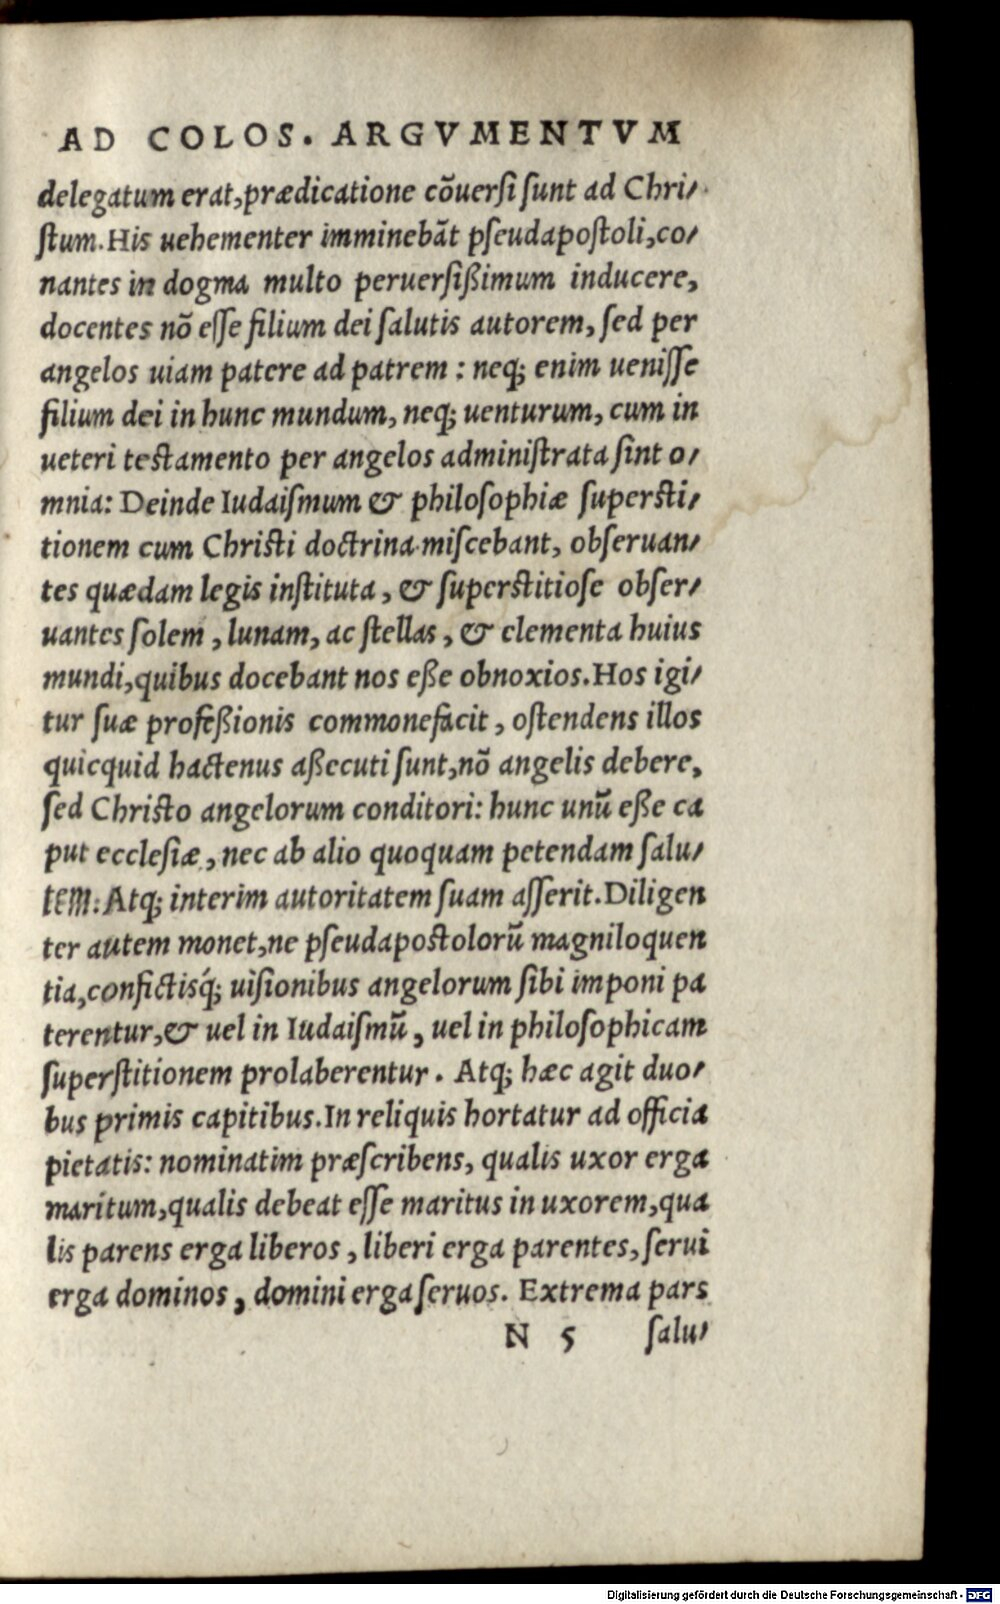 AD COLOS. ARGVMENTVM
delegatum erat,prædicatione cõuersi sunt ad Chri⸗
stum.His uehementer imminebãt pseudapostoli,co⸗
nantes in dogma multo peruersißimum inducere,
docentes nõ esse filium dei salutis autorem, sed per
angelos uiam patere ad patrem : neq; enim uenisse
filium dei in hunc mundum, neq; uenturum, cum in
ueteri testamento per angelos administrata sint o⸗
mnia: Deinde Iudaismum & philosophiæ supersti⸗
tionem cum Christi doctrina miscebant, obseruan⸗
tes quædam legis instituta, & superstitiose obser⸗
uantes solem, lunam, ac stellas, & elementa huius
mundi,quibus docebant nos eße obnoxios.Hos igi⸗
tur suæ profeßionis commonefacit, ostendens illos
quicquid hactenus aßecuti sunt,nõ angelis debere,
sed Christo angelorum conditori: hunc unũ eße ca
put ecclesiæ, nec ab alio quoquam petendam salu⸗
tem: Atq; interim autoritatem suam asserit.Diligen
ter autem monet,ne pseudapostolorũ magniloquen
tia,confictisq́; uisionibus angelorum sibi imponi pa
terentur,& uel in Iudaismũ, uel in philosophicam
superstitionem prolaberentur. Atq; hæc agit duo⸗
bus primis capitibus.In reliquis hortatur ad officia
pietatis: nominatim præscribens, qualis uxor erga
maritum,qualis debeat esse maritus in uxorem,qua
lis parens erga liberos, liberi erga parentes, serui
erga dominos, domini erga seruos. Extrema pars
N 5 salu⸗
Digitalisierung gefördert durch die Deutsche Forschungsgemeinschaft - DFG